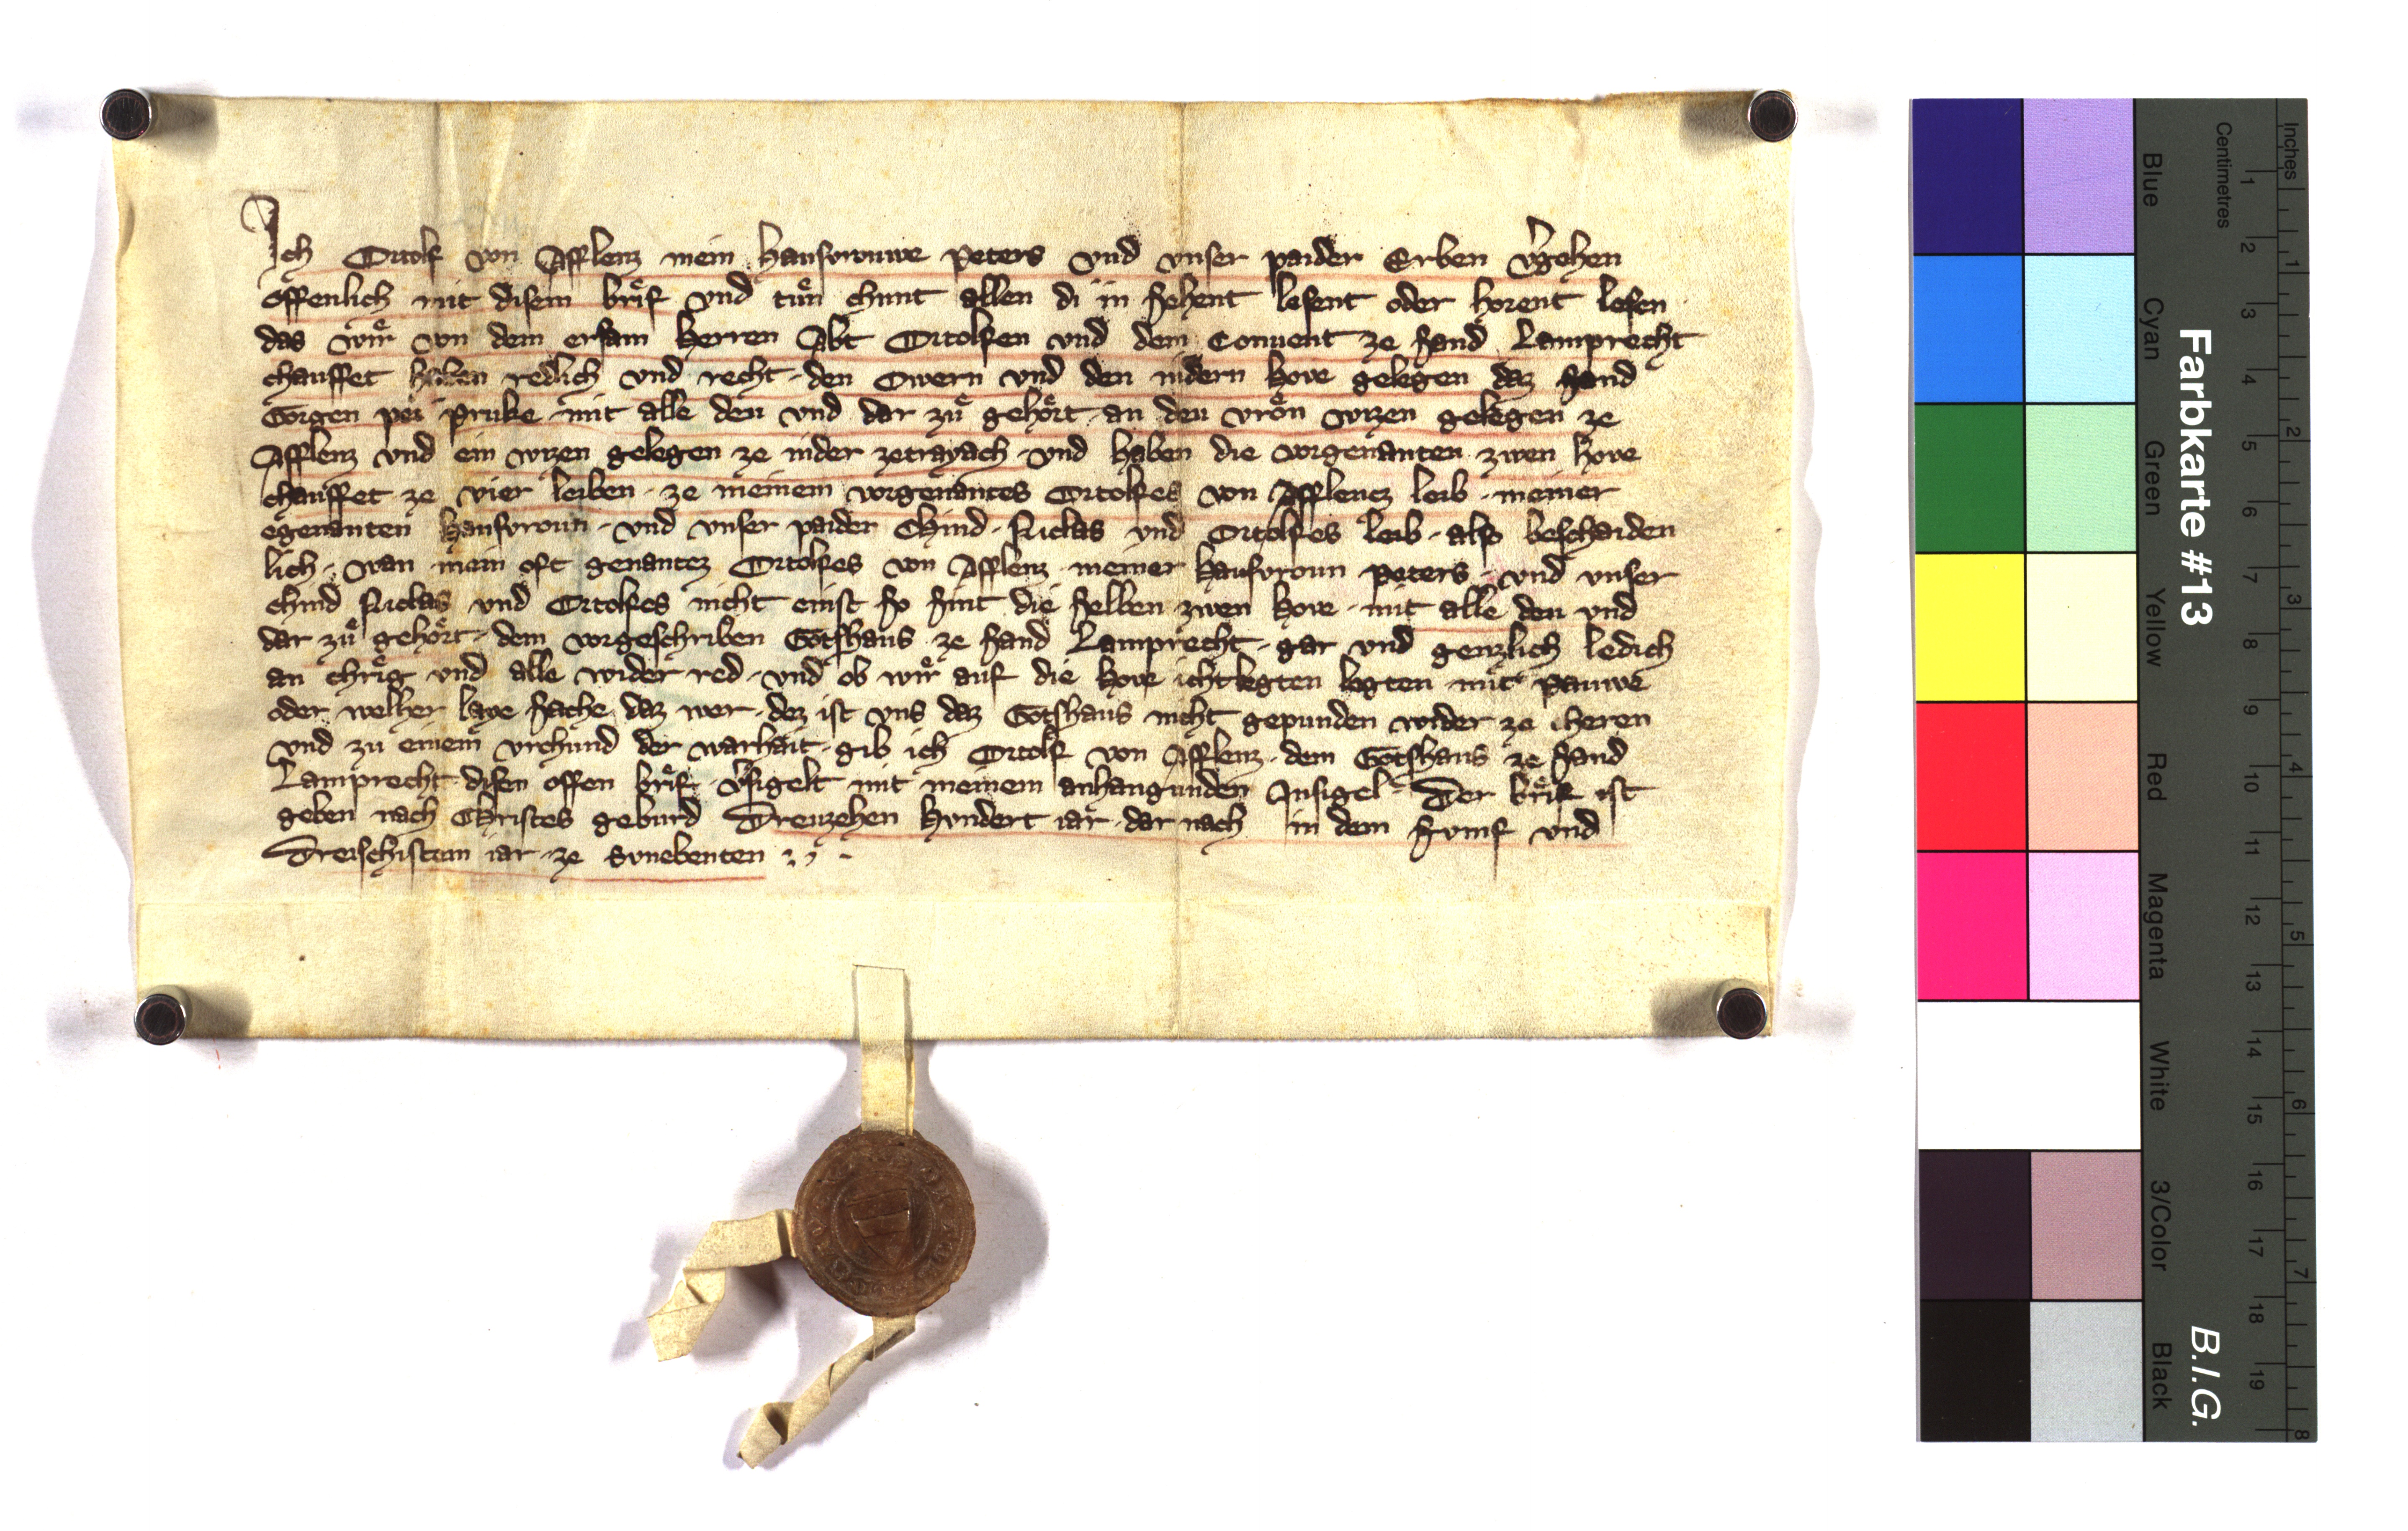 Ich Ortolf von Afflenz mein hausvrouwe Peters vnd vnser paider Erben v̾gehen
offenlich mit disem brif vnd tuͤn chunt allen di in sehent lesent oder horent lesen
das wir von dem ersam herren Abt Ortolfen vnd dem Conuent ze sand Lamprecht
chauffet haben redlich vnd recht · den Obern vnd den nidern hove gelegen daz sand
Gorgen pei pruke · mit alle den vnd dar zuͤ gehoͤrt · an den vroͤn wizen gelegen ze
Afflenz vnd ein wizen gelegen ze nider zetrayach · vnd haben die vorgenanten zwen hove
chauffet ze vier leiben · ze meinem vorgenantes Ortolfes von Afflencz leib · meiner
egenanten hausvroun · vnd vnser paider Chind · Niclas vnd Ortolfes leib · also beschaiden
lich · wan mein oft genantez Ortolfes von Afflenz meiner hausvroun Peters · vnd vnser
chind Niclas vnd Ortolfes nicht enist so sint die selben zwen hove · mit alle den vnd
dar zuͤ gehoͤrt · dem vorgeschriben Gotshaus ze sand Lamprecht · gar vnd genzlich ledich
an chrig vnd alle wider red · vnd ob wir auf die hove icht legten mit pauwe
oder welher laye sache daz wer · dez ist vns daz Gotshaus nicht gepunden wider ze cheren
vnd zu einem vrchund der warhait · gib ich Ortolf von Afflenz · dem Gotshaus ze sand
Lamprecht · disen offen brif · v̾sigelt mit meinem anhangunden Insigel · Der brif ist
geben nach Christes geburd Dreuzehen hundert iar · dar nach in dem fvmf vnd
Dreischistem iar · ze Svnebenten
Farbkarte #13
B.I.G.
Inches
Centimetres
1 2 3 4 5 6 7 8 9 10 11 12 13 14 15 16 17 18 19
1 2 3 4 5 6 7 8
Blue
Cyan
Green
Yellow
Red
Magenta
White
3/Color
Black